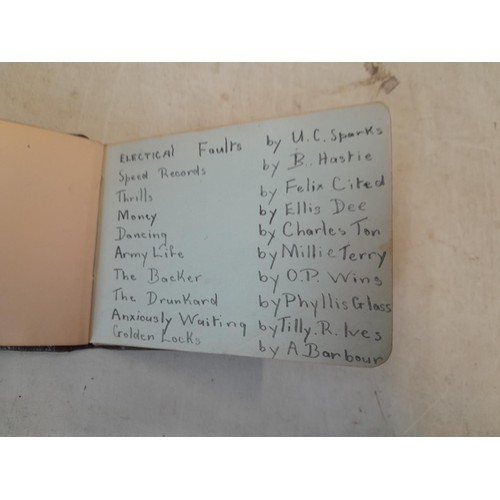 ELECTICAL Faults by U.C. Sparks
Speed Records by B. Hastie
Thrills by Felix Cited
Money by Ellis Dee
Dancing by Charles Ton
Army Life by Millie Terry
The Backer by O.P. Wins
The Drunkard by Phyllis Glass
Anxiously Waiting by Tilly.R. Ives
Golden Locks by A Barbour